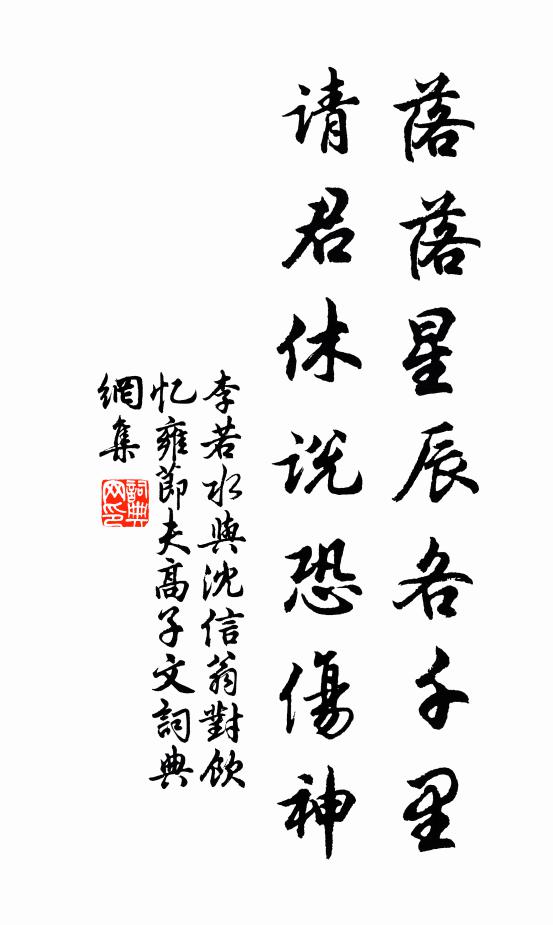 落落星辰各千里
请君休说恐傷神
李若水與沈信翁對飲
忆雍節夫高子文詞典
網集
詞典网印